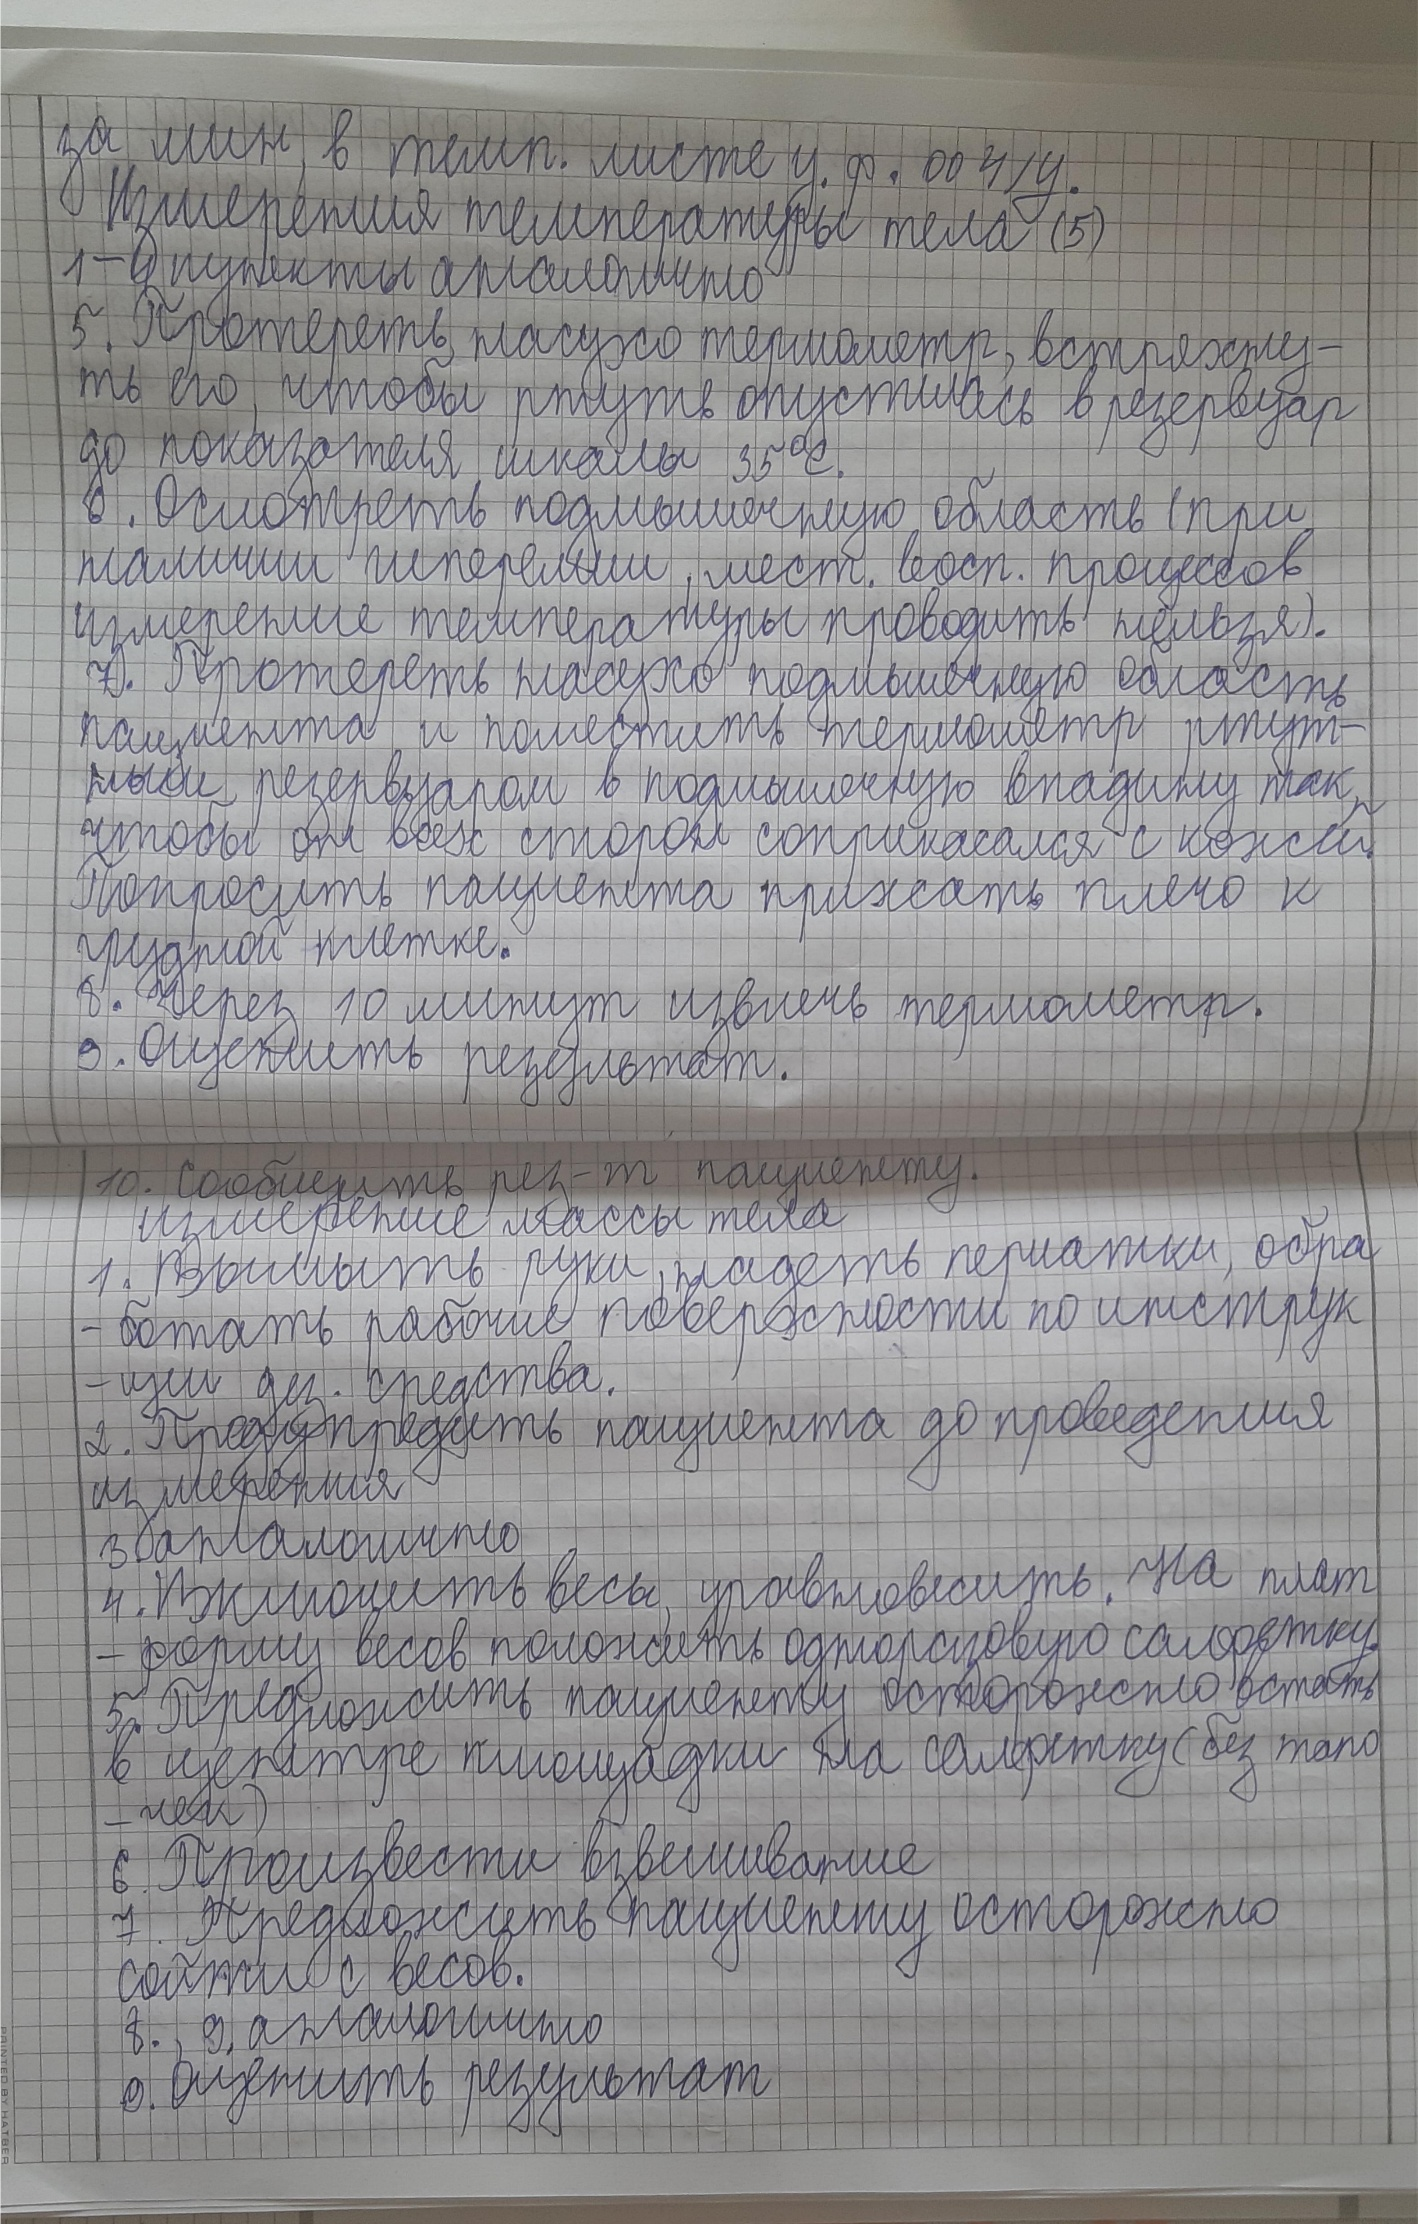 за мин, в темп. листе у. ф. 004/у.
Измерения температуры тела (5)
1-4 пункты аналогично
5. Протереть насухо термометр, встряхну-
ть его, чтобы ртуть опустилась в резервуар
до показателя шкалы 35°С.
6. Осмотреть подмышечную область (при
наличии гиперемии, мест. восп. процессов
измерение температуры проводить нельзя).
7). Протереть насухо подмышечную область
пациента и поместить термометр ртут-
ным резервуаром в подмышечную впадину так,
чтобы он всех сторон соприкасался с кожей.
Попросить пациента прижать плечо к
грудной клетке.
8. Через 10 минут извлечь термометр.
9. Оценить результат.
10. Сообщить рез-т пациенту.
измерение массы тела
1. Вымыть руки, надеть перчатки, обра
- ботать рабочие поверхности по инструк
- ции дез. средства.
2. Предупредить пациента до проведения
измерения
3 аналогично
4. Включить весы, уравновесить. На плат
- форму весов положить одноразовую салфетку.
5. Предложить пациенту осторожно встать
в центре площадки на салфетку (без тапо
- чек)
6. Произвести взвешивание
7. Предложить пациенту осторожно
сойти с весов.
8., 9. аналогично
9. Оценить результат
PRINTED BY HATBER